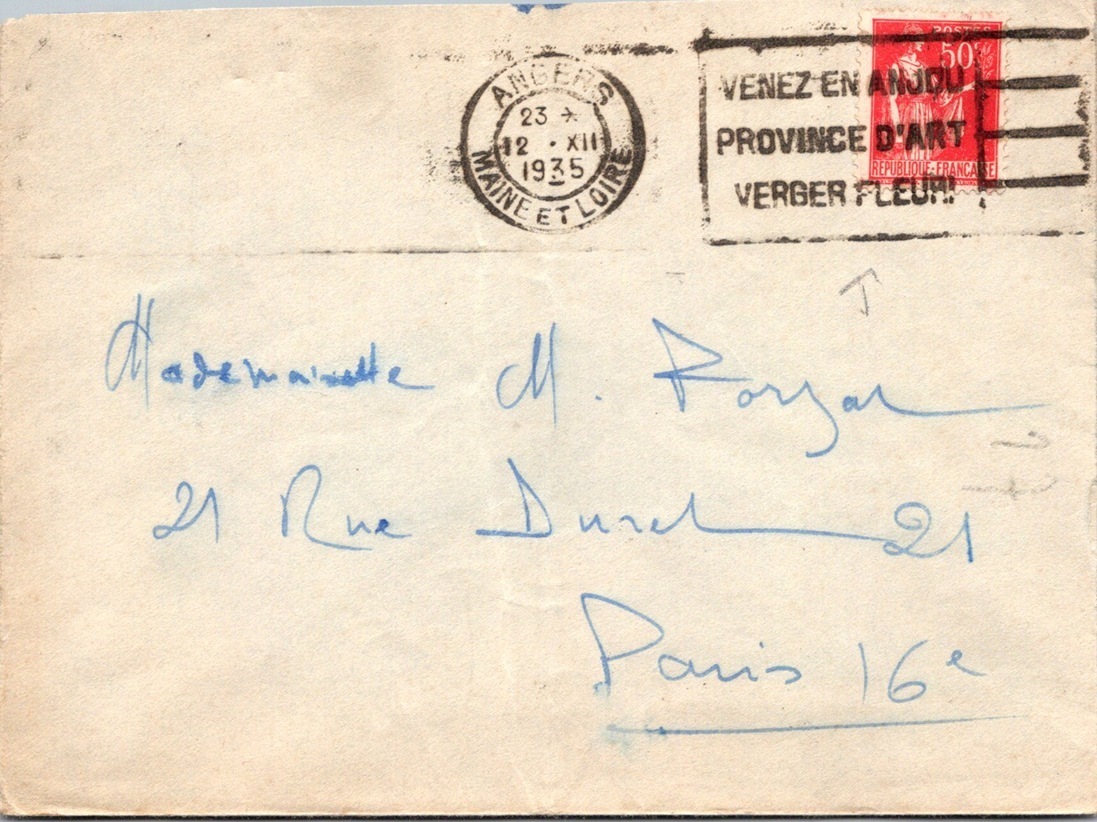 ANGERS
23 *
12 • XII
1935
MAINE ET LOIRE
VENEZ EN ANJOU
PROVINCE D'ART
VERGER FLEURI
POSTES
50c
REPUBLIQUE-FRANÇAISE
Mademoiselle M.
21 Rue 21
Paris 16e